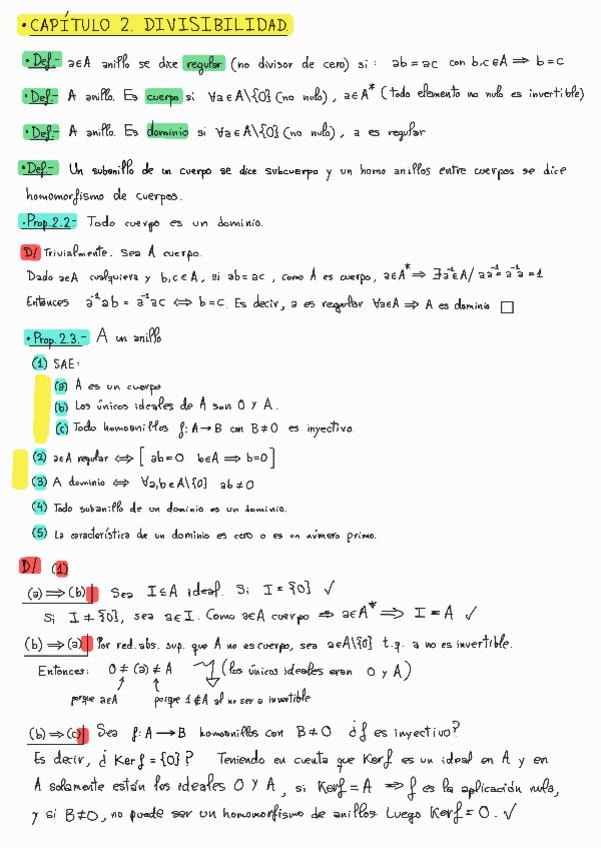 • CAPÍTULO 2. DIVISIBILIDAD.
• Def.- a∈A anillo se dice regular (no divisor de cero) si: ab = ac con b,c∈A ⇒ b=c
• Def.- A anillo. Es cuerpo si ∀a∈A\{0} (no nulo), a∈A* (todo elemento no nulo es invertible)
• Def.- A anillo. Es dominio si ∀a∈A\{0} (no nulo), a es regular
• Def.- Un subanillo de un cuerpo se dice subcuerpo y un homo anillos entre cuerpos se dice
homomorfismo de cuerpos.
• Prop.2.2- Todo cuerpo es un dominio.
D/ Trivialmente. Sea A cuerpo.
Dado a∈A cualquiera y b,c∈A, si ab=ac, como A es cuerpo, a∈A* ⇒ ∃a⁻¹∈A / aa⁻¹=a⁻¹a=1
Entonces a⁻¹ab = a⁻¹ac ⇔ b=c. Es decir, a es regular ∀a∈A ⇒ A es dominio □
• Prop.2.3.- A un anillo
(1) SAE:
(a) A es un cuerpo
(b) Los únicos ideales de A son 0 y A.
(c) Todo homoanillos f:A→B con B≠0 es inyectivo.
(2) a∈A regular ⇔ [ ab=0 b∈A ⇒ b=0 ]
(3) A dominio ⇔ ∀a,b∈A\{0} ab≠0
(4) Todo subanillo de un dominio es un dominio.
(5) La característica de un dominio es cero o es un número primo.
D/ (1)
(a) ⇒ (b) Sea I≤A ideal. Si I = {0} √
Si I ≠ {0}, sea a∈I. Como a∈A cuerpo ⇒ a∈A* ⇒ I = A √
(b) ⇒ (a) Por red.abs. sup. que A no es cuerpo, sea a∈A\{0} t.q. a no es invertible.
Entonces: 0 ≠ (a) ≠ A (los únicos ideales eran 0 y A)
porque a∈A porque 1∉A al no ser a invertible
(b) ⇒ (c) Sea f:A→B homoanillos con B≠0 ¿f es inyectivo?
Es decir, ¿ Kerf = {0}? Teniendo en cuenta que Kerf es un ideal en A y en
A solamente están los ideales 0 y A, si Kerf = A ⇒ f es la aplicación nula,
y si B≠0, no puede ser un homomorfismo de anillos. Luego Kerf = 0. √